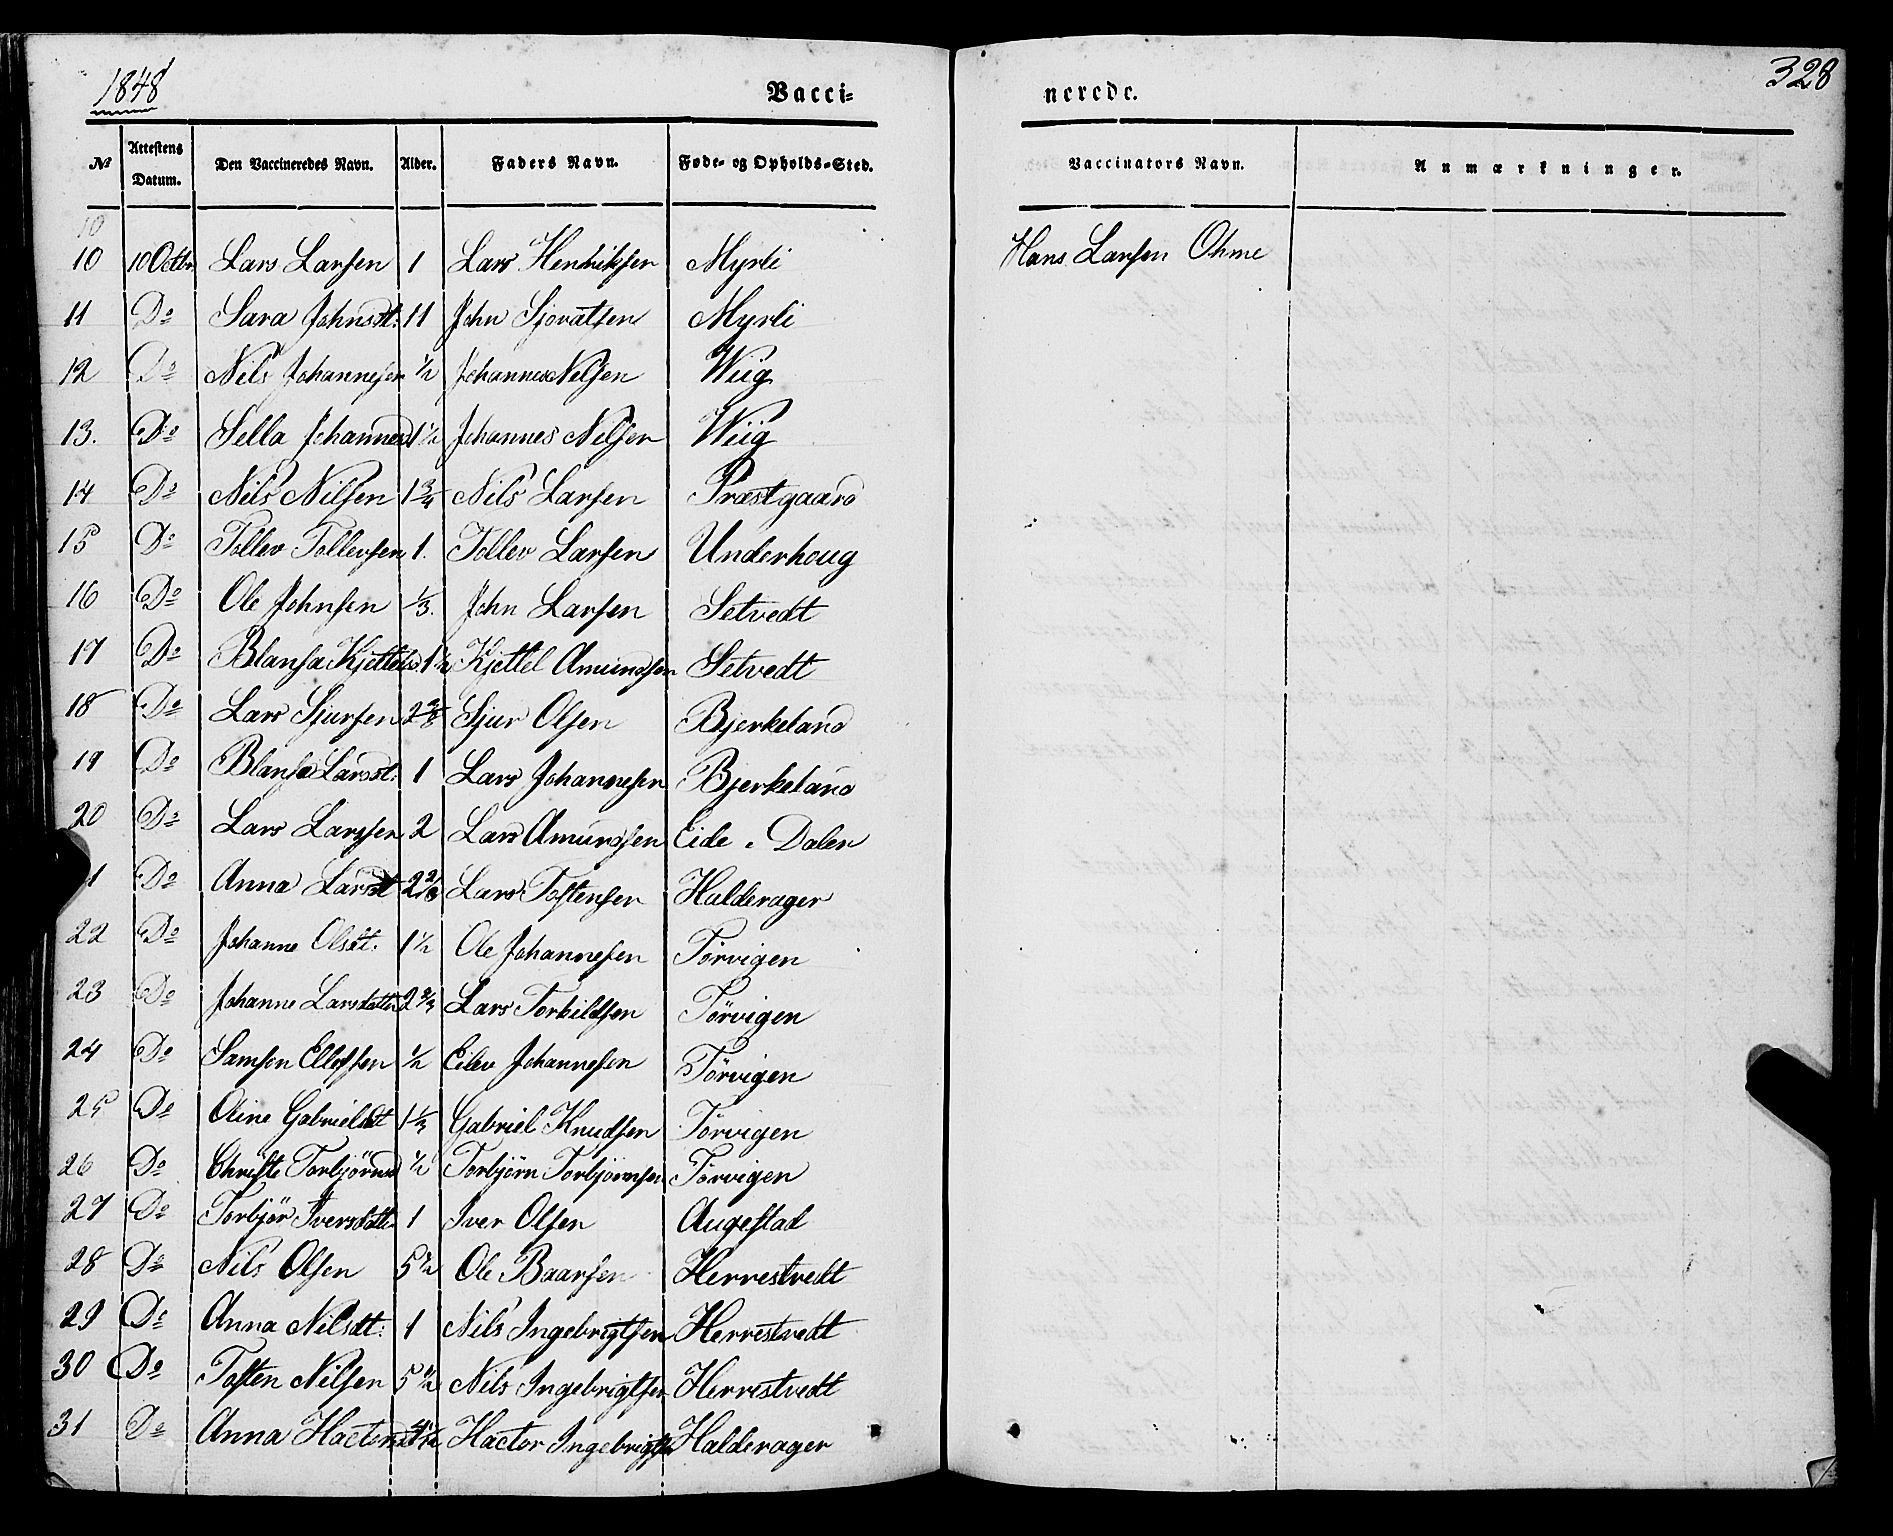 1848
328
Vacci=
nerede.
No Attestens Datum. Den Vaccineredes Navn. Alder. Faders Navn. Føde- og Opholds-Sted. Vaccinators Navn. Anmærkninger.
10
10 10 Octbr Lars Larsen 1 Lars Henriksen Myrli Hans Larsen Ohme
11 Do Sara Johnsdt: 11 John Sjovatsen Myrli
12 Do Nils Johannesen ½ Johannes Nelsen Wiig
13. Do Sella Johannesd 1½ Johannes Nelsen Wiig
14 Do Nils Nilsen 1¾ Nils Larsen Præstgaard
15 Do Tollev Tollevsen 1. Tollev Larsen Underhoug
16 Do Ole Johnsen ⅓. John Larsen Setvedt
17 Do Blansa Kjettels. 1½ Kjettel Amundsen Setvedt
18 Do Lars Sjursen 2 Sjur Olsen Bjerkeland
19 Do Blansa Larsdt: 1 Lars Johannesen Bjerkeland
20 Do Lars Larssen 2 Lars Amundsen Eide i Dalen
1 Do Anna Larsdt 2⅔ Lars Tostensen Halderager
22 Do Johanne Olsdt: 1½ Ole Johannesen Tørvigen
23 Do Johanne Larsdatter 2¾ Lars Torkildsen Tørvigen
24 Do Samson Ellefsen ½ Eilev Johannesen Tørvigen
25 Do Oline Gabrielsdt 1⅓ Gabriel Knudsen Tørvigen
26 Do Christe Torbjørnsd ½ Torbjørn Torbjørnsen Tørvigen
27 Do Torbjør Iversdatter 1 Iver Olsen Augestad
28 Do Nils Olsen 5½ Ole Baarsen Herrestvedt
29 Do Anna Nilsdt: 1 Nils Ingebrigtsen Herrestvedt
30 Do Tosten Nilsen 5½ Nils Ingebrigtsen Herrestvedt
31 Do Anna Hactorsdt 4½ Hactor Ingebrigtsen Halderager